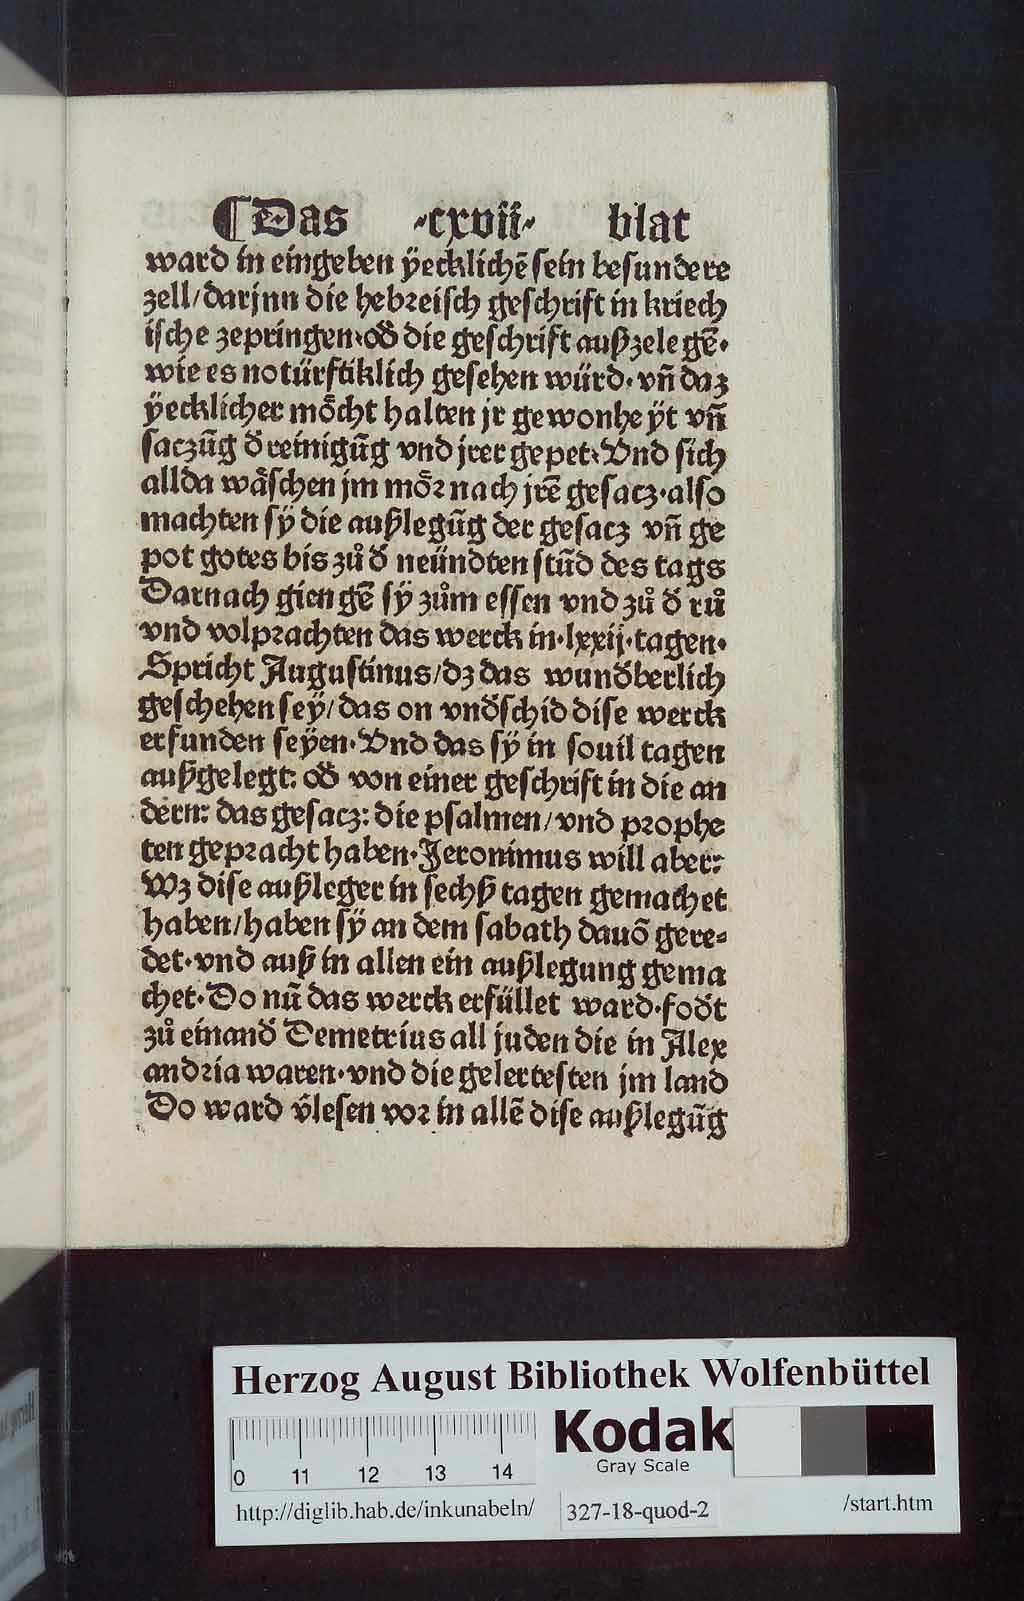 ⸿Das ·cxvii· blat
ward in eingeben ÿecklichē sein besundere
zell/darjnn die hebꝛeisch geschrift in kriech
ische zepringen·oď die geschrift außzelegē·
wie es notürftiklich gesehen würd·vn̄ daz
ÿecklicher moͤcht halten jr gewonheÿt vn̄
saczūg ď reinigūg vnd jrer gepet·Vnd sich
allda waͤschen jm moͤꝛ nach jrē gesacz·also
machten sÿ die außlegūg der gesacz vn̄ ge
pot gotes bis zuͦ ď neündten stūd des tags
Darnach giengē sÿ zuͦm essen vnd zuͦ ď ruͦ
vnd volpꝛachten das werck in·lxxij·tagen·
Spricht Augustinus/dz das wunďberlich
geschehen seÿ/das on vnďschid dise werck
erfunden seÿen·Vnd das sÿ in souil tagen
außgelegt: oď von einer geschrift in die an
dern: das gesacz: die psalmen/vnd pꝛophe
ten gepꝛacht haben·Jeronimus will aber:
Wz dise außleger in sechß tagen gemachet
haben/haben sÿ an dem sabath dauō gere⸗
det·vnd auß in allen ein außlegung gema
chet·Do nū das werck erfüllet ward·foďt
zuͦ einanď Demetrius all juden die in Alex
andꝛia waren·vnd die gelertesten jm land
Do ward v̂lesen voꝛ in allē dise außlegūg
Herzog August Bibliothek Wolfenbüttel
Kodak
Gray Scale
0 11 12 13 14
http://diglib.hab.de/inkunabeln/ 327-18-quod-2 /start.htm